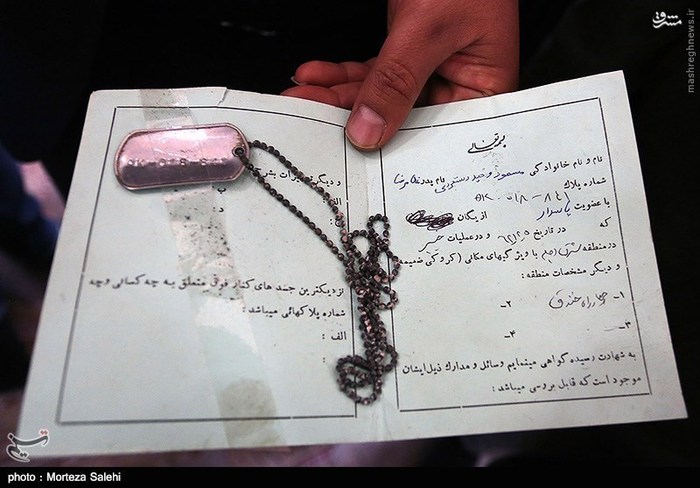 مشرق
mashreghnews.ir
بسمه تعالی
نام و نام خانوادگی مسعود وحید دستجردی نام پدر غلامرضا
شماره پلاک
با عضویت پاسدار از یگان
که در تاریخ و در عملیات خیبر
در منطقه با ویژگیهای مکانی (کروکی ضمیمه)
و دیگر مشخصات منطقه :
۱- چهارراه خندق ۲-
۳- ۴-
به شهادت رسیده گواهی مینمایم وسائل و مدارک ذیل ایشان
موجود است که قابل بررسی میباشد :
و دیگر
الف :
ب
د
نزدیکترین جسد های کنار فوق متعلق به چه کسانی و چه
شماره پلاکهائی میباشد :
الف :
تسنیم
photo : Morteza Salehi